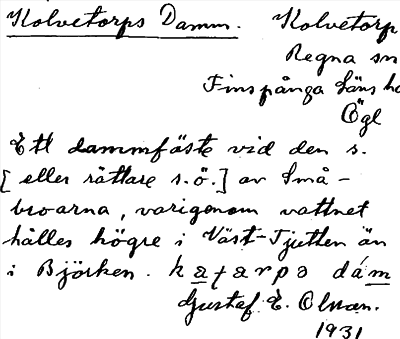 Kolvetorps Damm. Kolvetorp
Regna sn
Finspånga läns hd
Ögl
Ett dammfäste vid den s.
[eller rättare s.ö.] av Små-
broarna, varigenom vattnet
hålles högre i Väst-Tjutten än
i Björken. kaƭarpa dám
Gustaf E. Olsson.
1931